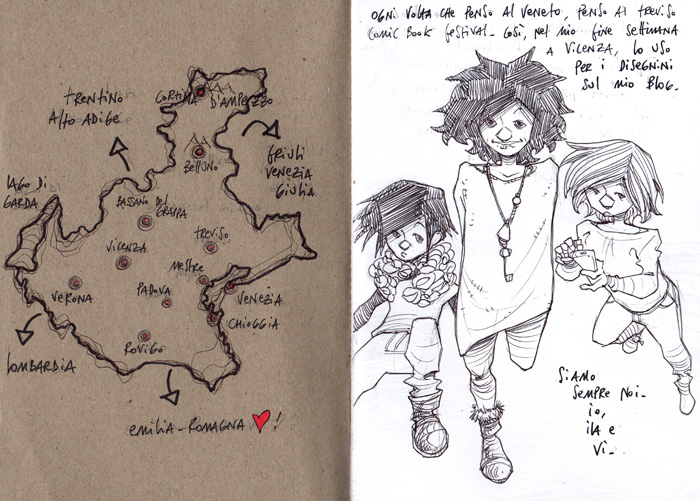 CORTINA D'AMPEZZO
TRENTINO
ALTO ADIGE
BELLUNO
FRIULI
VENEZIA
GIULIA
LAGO DI
GARDA
BASSANO DEL
GRAPPA
TREVISO
VICENZA
MESTRE
VERONA
PADOVA
VENEZIA
CHIOGGIA
ROVIGO
LOMBARDIA
EMILIA-ROMAGNA !
OGNI VOLTA CHE PENSO AL VENETO, PENSO AL TREVISO
COMIC BOOK FESTIVAL. COSÌ, NEL MIO FINE SETTIMANA
A VICENZA, LO USO
PER I DISEGNINI
SUL MIO BLOG.
SIAMO
SEMPRE NOI-
IO,
ILA E
VÌ.